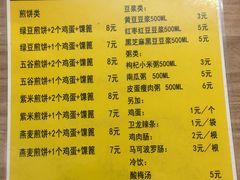 煎饼类
绿豆煎饼+2个鸡蛋+馃篦 8元
绿豆煎饼+1个鸡蛋+馃篦 7元
五谷煎饼+2个鸡蛋+馃篦 8元
五谷煎饼+1个鸡蛋+馃篦 7元
紫米煎饼+2个鸡蛋+馃篦 8元
紫米煎饼+1个鸡蛋+馃篦 7元
燕麦煎饼+2个鸡蛋+馃篦 8元
燕麦煎饼+1个鸡蛋+馃篦 7元
豆浆类:
黄豆豆浆500ML 3元
红枣红豆豆浆500ML 5元
黑芝麻黑豆豆浆500ML 5元
粥类:
枸杞小米粥500ML 3元
南瓜粥 500ML 5元
皮蛋瘦肉粥 500ML 6元
另加:
鸡蛋: 1元/个
卫龙辣条: 1元/袋
鸡肉肠: 2元/根
马可波罗肠: 3元/根
冷饮:
酸梅汤 5元